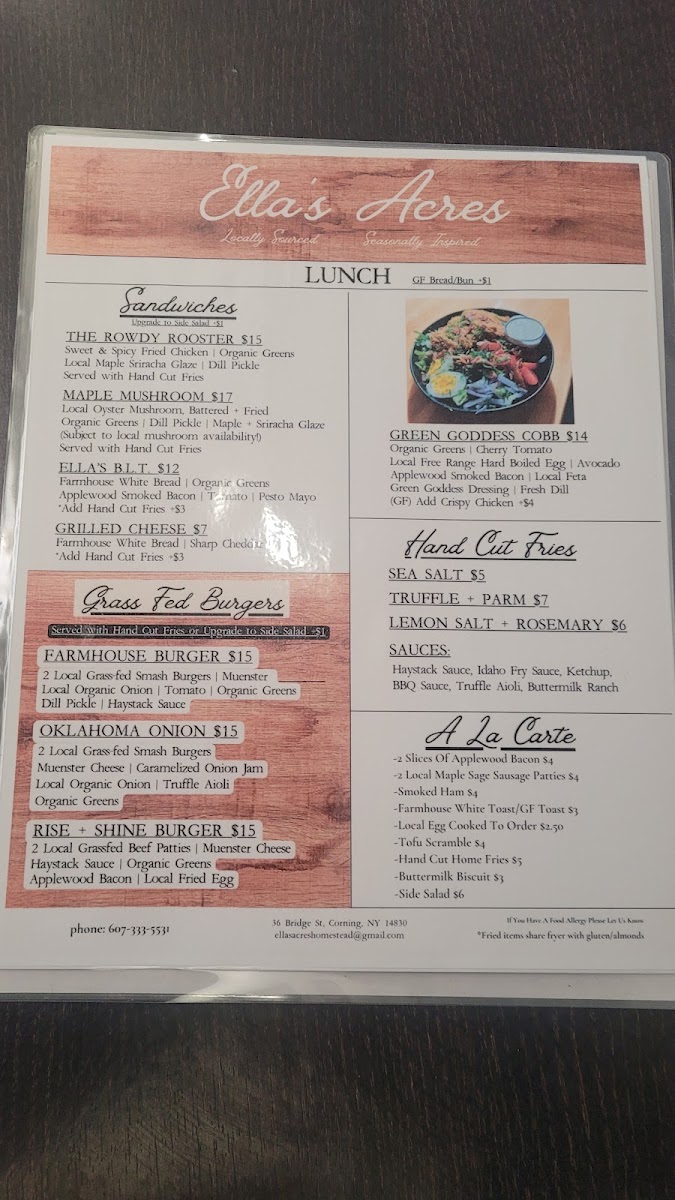 Ella's Acres
Locally Sourced Seasonally Inspired
LUNCH GF Bread/Bun +$1
Sandwiches
Upgrade to Side Salad +$1
THE ROWDY ROOSTER $15
Sweet & Spicy Fried Chicken | Organic Greens
Local Maple Sriracha Glaze | Dill Pickle
Served with Hand Cut Fries
MAPLE MUSHROOM $17
Local Oyster Mushroom, Battered + Fried
Organic Greens | Dill Pickle | Maple + Sriracha Glaze
(Subject to local mushroom availability!)
Served with Hand Cut Fries
ELLA'S B.L.T. $12
Farmhouse White Bread | Organic Greens
Applewood Smoked Bacon | Tomato | Pesto Mayo
*Add Hand Cut Fries +$3
GRILLED CHEESE $7
Farmhouse White Bread | Sharp Cheddar
*Add Hand Cut Fries +$3
Grass Fed Burgers
Served with Hand Cut Fries or Upgrade to Side Salad +$1
FARMHOUSE BURGER $15
2 Local Grass-fed Smash Burgers | Muenster
Local Organic Onion | Tomato | Organic Greens
Dill Pickle | Haystack Sauce
OKLAHOMA ONION $15
2 Local Grass-fed Smash Burgers
Muenster Cheese | Caramelized Onion Jam
Local Organic Onion | Truffle Aioli
Organic Greens
RISE + SHINE BURGER $15
2 Local Grassfed Beef Patties | Muenster Cheese
Haystack Sauce | Organic Greens
Applewood Bacon | Local Fried Egg
GREEN GODDESS COBB $14
Organic Greens | Cherry Tomato
Local Free Range Hard Boiled Egg | Avocado
Applewood Smoked Bacon | Local Feta
Green Goddess Dressing | Fresh Dill
(GF) Add Crispy Chicken +$4
Hand Cut Fries
SEA SALT $5
TRUFFLE + PARM $7
LEMON SALT + ROSEMARY $6
SAUCES:
Haystack Sauce, Idaho Fry Sauce, Ketchup,
BBQ Sauce, Truffle Aioli, Buttermilk Ranch
A La Carte
-2 Slices Of Applewood Bacon $4
-2 Local Maple Sage Sausage Patties $4
-Smoked Ham $4
-Farmhouse White Toast/GF Toast $3
-Local Egg Cooked To Order $2.50
-Tofu Scramble $4
-Hand Cut Home Fries $5
-Buttermilk Biscuit $3
-Side Salad $6
phone: 607-333-5531
36 Bridge St, Corning, NY 14830
ellasacreshomestead@gmail.com
If You Have A Food Allergy Please Let Us Know
*Fried items share fryer with gluten/almonds